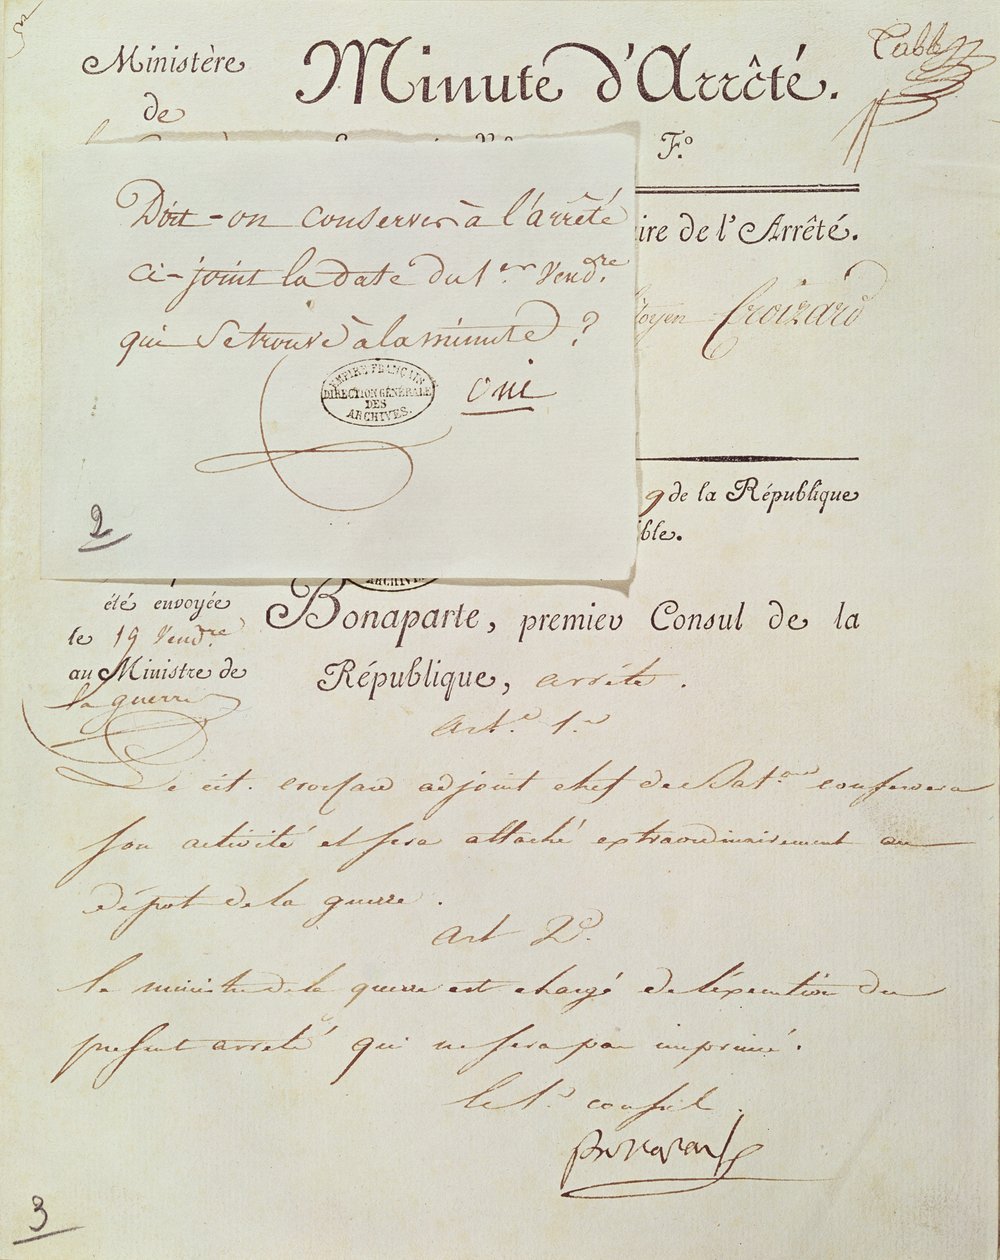 3
Ministère
de
Minute d'Arrêté.
F.º
Doit-on conserver à l'arrêté
ci-joint la date du 1.er Vend.re
qui se trouve à la minute ?
oui
EMPIRE FRANÇAIS
DIRECTION GÉNÉRALE
DES
ARCHIVES.
2
ire de l'Arrêté.
toyen Croizard
9 de la République
ible.
ARCHIVES
été envoyée
le 19 Vend.re
au Ministre de
la guerre
Bonaparte, premier Consul de la
République, arrête.
art.e 1.er
Le cit. adjoint chef de Bat.on conservera
son activité et sera attaché extraordinairement au
dépot de la guerre.
art 2.d
le ministre de la guerre est chargé de l'exécution du
present arreté qui ne sera pas imprimé.
le 1.er consul.
Bonaparte
3